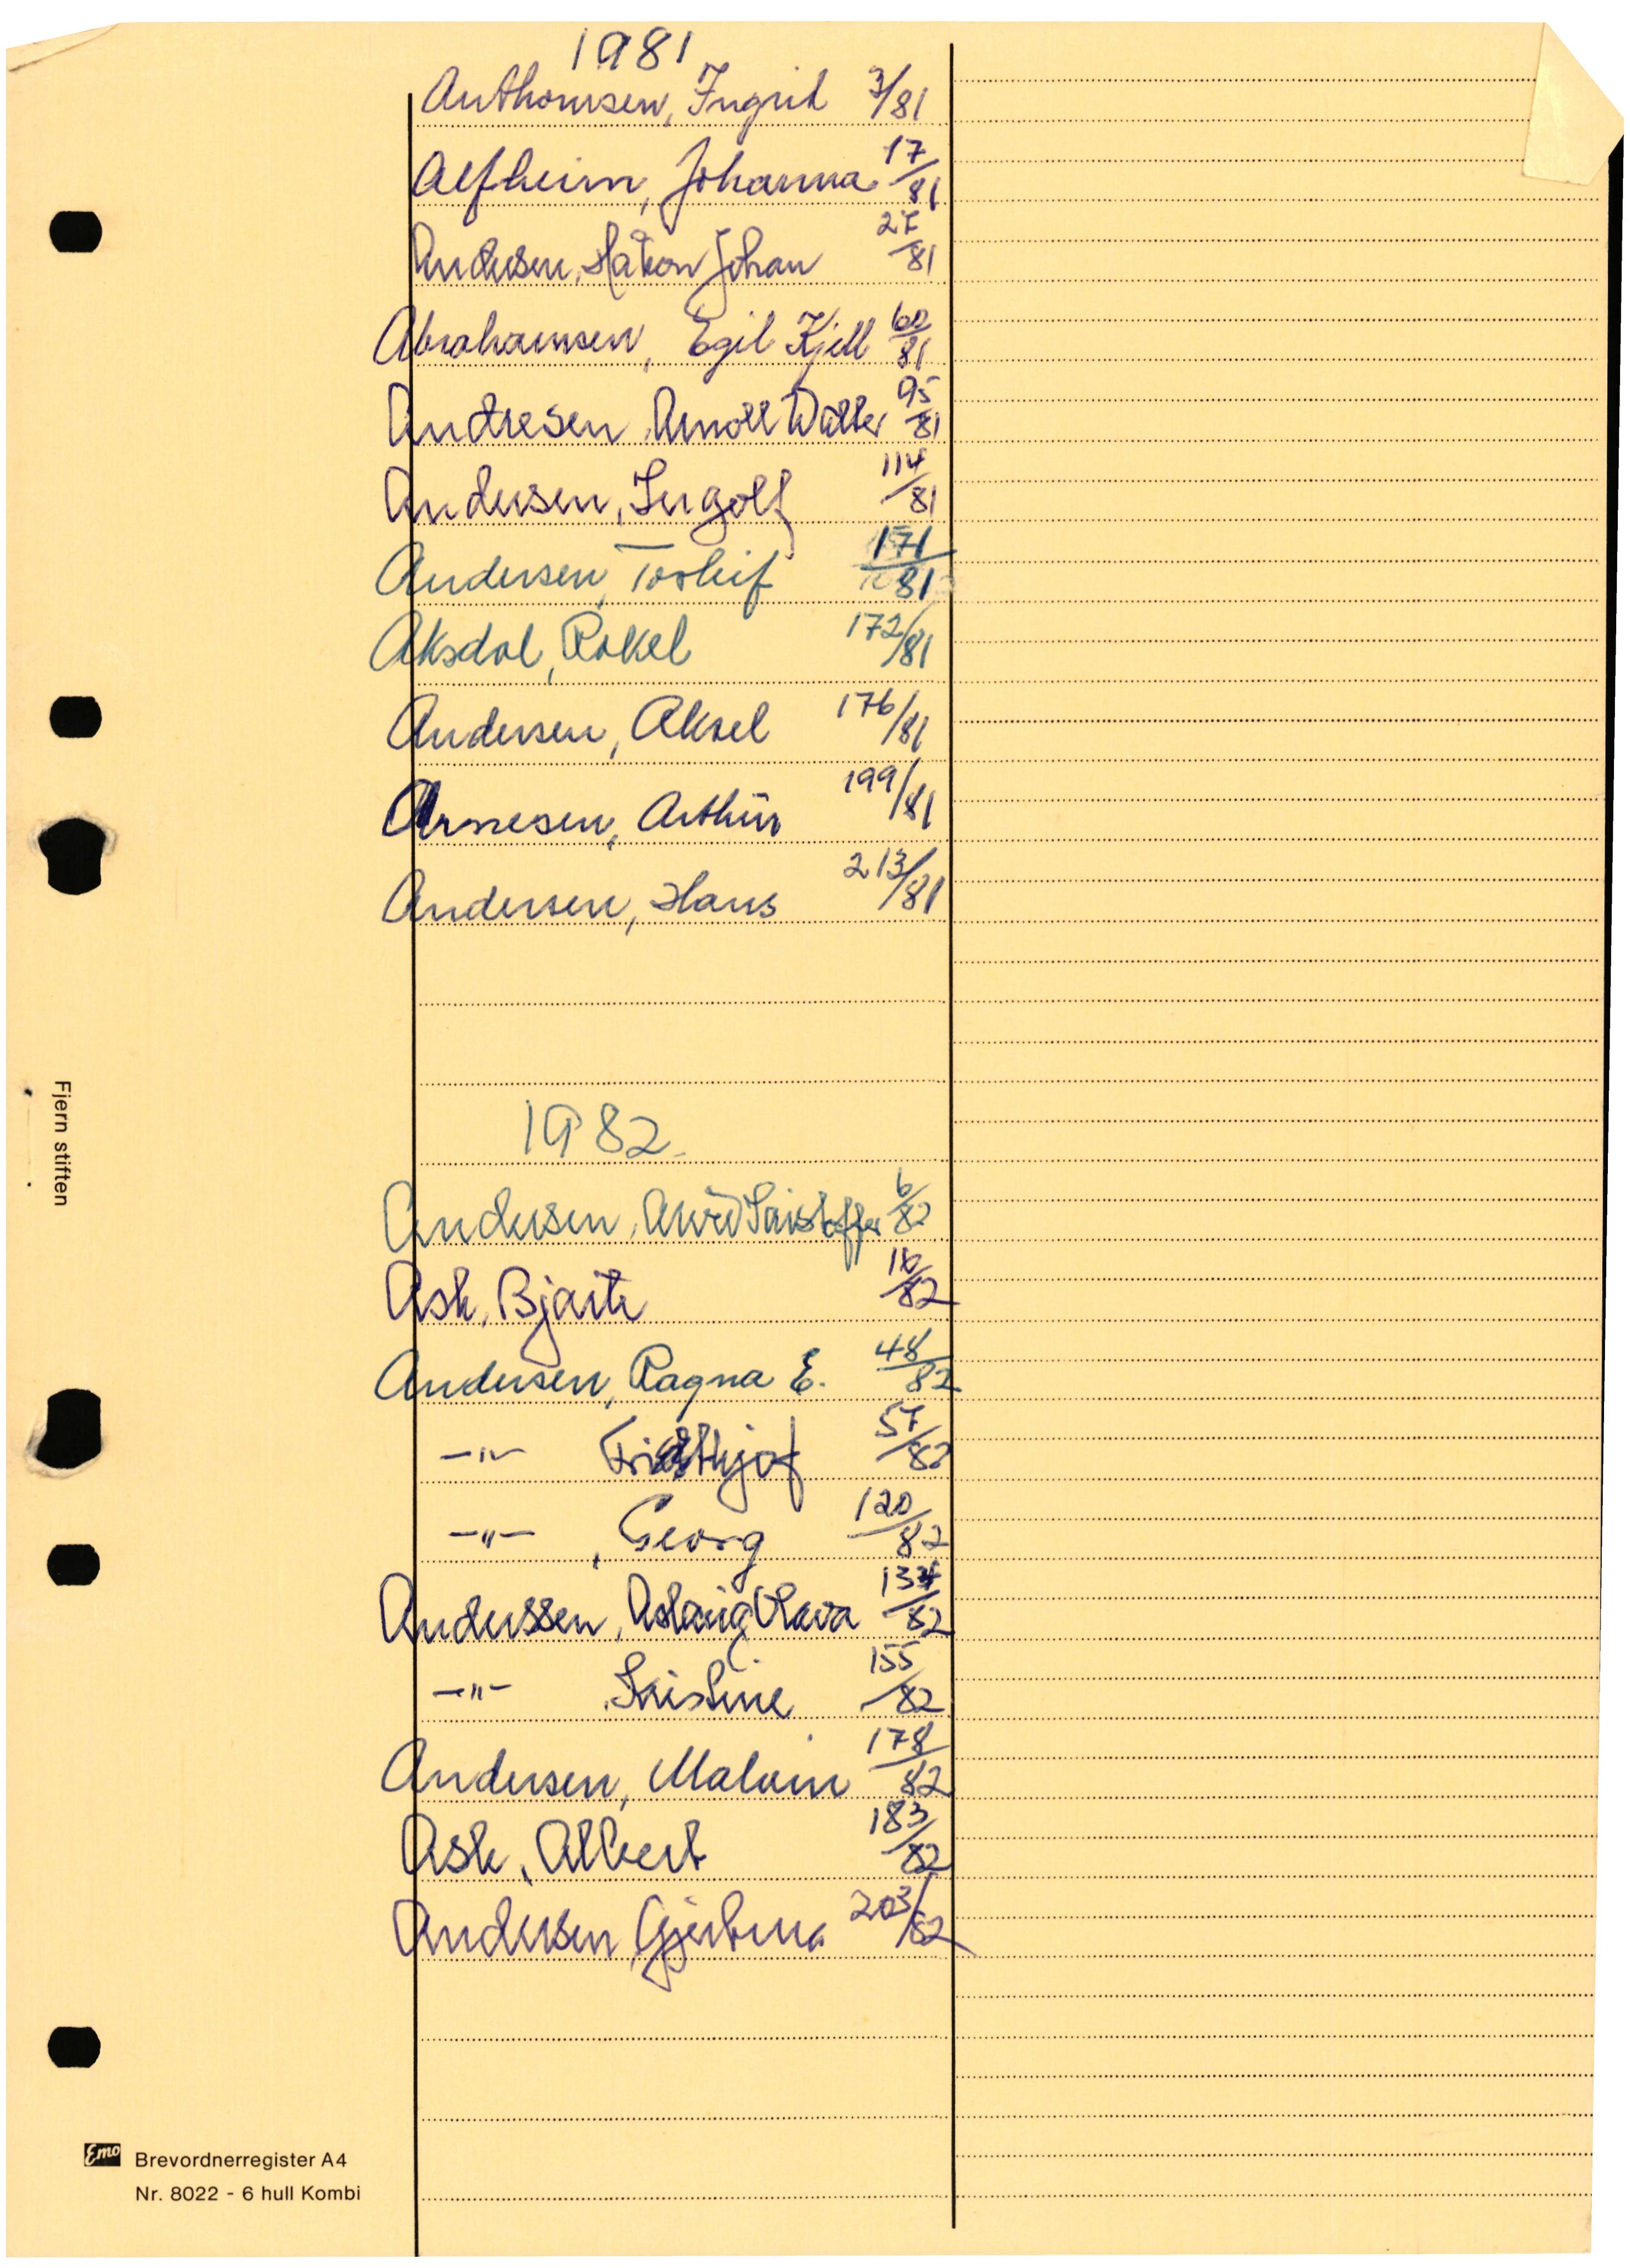 1981
Anthonsen, Ingrid 3/81
Alfheim, Johanna 17/81
Andersen, Håkon Johan 27/81
Abrahamsen, Egil Kjell 60/81
Andresen, Arnolf Walter 95/81
Andersen, Ingolf 114/81
Andersen, Torleif 171/81
Aksdal, Rakel 172/81
Andersen, Aksel 176/81
Arnesen, Arthur 199/81
Andersen, Hans 213/81
1982
Andersen, Arvid Kristoffer 6/82
Ask, Bjarte 16/82
Andersen, Ragna E. 48/82
-"- Fridthjof 57/82
-"- , Georg 120/82
Anderssen, Aslaug Olava 134/82
-"- , Kristine 155/82
Andersen, Malvin 178/82
Ask, Albert 183/82
Andersen, Gjertine 203/82
Fjern stiften
Emo Brevordnerregister A4
Nr. 8022 - 6 hull Kombi